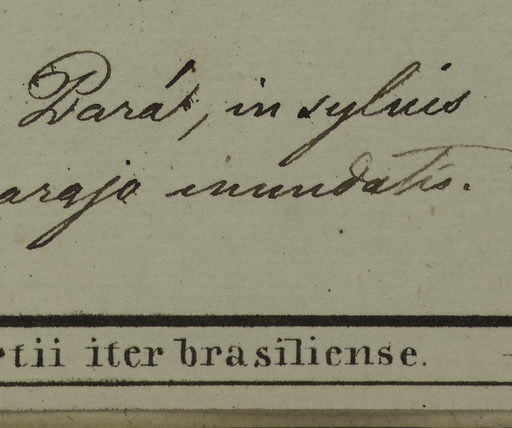 Pará, in sylvis
arajo inundatis.
tii iter brasiliense.